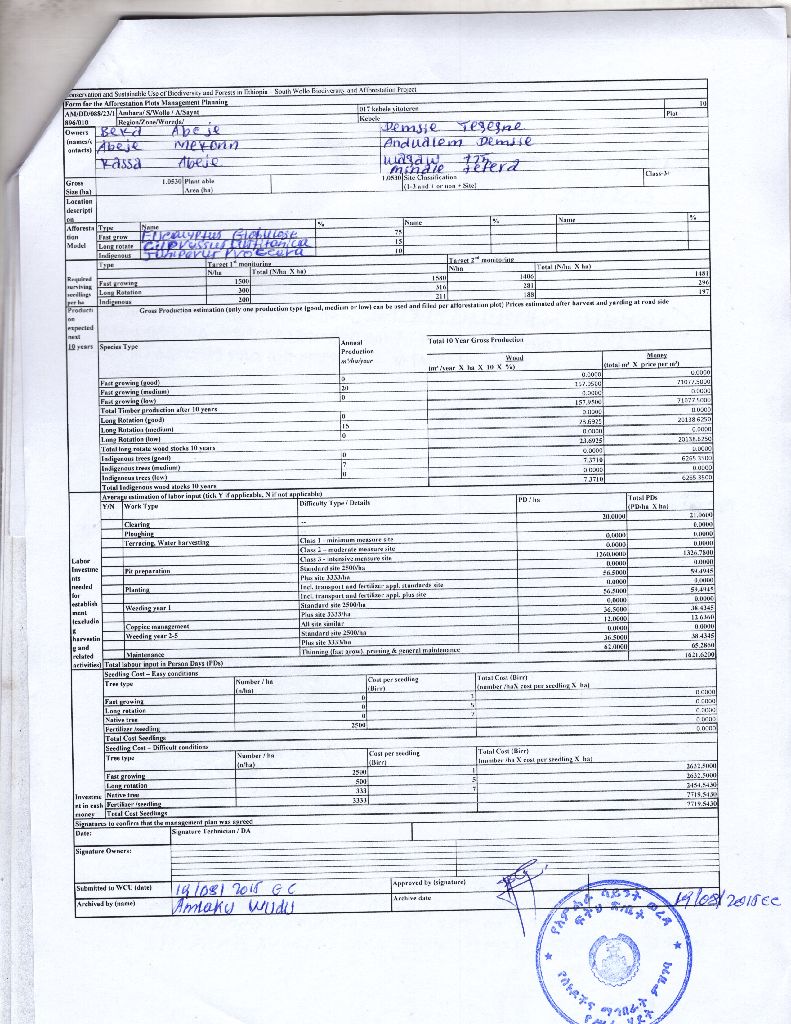 onservation and Sustainable Use of Biodiversity and Forests in Ethiopia - South Wello Biodiversity and Afforestation Project
Form for the Afforestation Plots Management Planning
AM/DD/088/23/1 Amhara/ S/Wollo / A/Saynt 017 kebele yitoteren 10
896/010 Region/Zone/Woreda/ Kebele Plot
Owners Bekd Abeje Demsie Tegegne
(names/c Abeje Mekonn Andualem Demsie
ontacts) Kassa Abeje
Gross 1.0530 Plantable 1.0530 Site Classification Class-3/
Size (ha) Area (ha) (1-3 and + or non + Site)
Location
descripti
on
Afforesta Type Name % Name % Name %
tion Fast grow Eucalyptus Globulose 75
Model Long rotate 15
Indigenous Juniperus Procera 10
Type Target 1st monitoring Target 2nd monitoring
N/ha Total (N/ha X ha) N/ha Total (N/ha X ha)
Required Fast growing 1500 1580 1406 1481
surviving Long Rotation 300 316 281 296
seedlings Indigenous 200 211 188 197
per ha
Producti Gross Production estimation (only one production type (good, medium or low) can be used and filled per afforestation plot) Prices estimated after harvest and yarding at road side
on
expected
next
10 years Species Type Annual Production m³/ha/year Total 10 Year Gross Production
Wood Money
(m³ /year X ha X 10 X %) (total m³ X price per m³)
Fast growing (good) 0 0.0000 0.0000
Fast growing (medium) 20 157.9500 71077.5000
Fast growing (low) 0 0.0000 0.0000
Total Timber production after 10 years 157.9500 71077.5000
Long Rotation (good) 0 0.0000 0.0000
Long Rotation (medium) 15 23.6925 20138.6250
Long Rotation (low) 0 0.0000 0.0000
Total long rotate wood stocks 10 years 23.6925 20138.6250
Indigenous trees (good) 0 0.0000 0.0000
Indigenous trees (medium) 7 7.3710 6265.3500
Indigenous trees (low) 0 0.0000 0.0000
Total Indigenous wood stocks 10 years 7.3710 6265.3500
Average estimation of labor input (tick Y if applicable, N if not applicable)
Y/N Work Type Difficulty Type / Details PD / ha Total PDs
(PD/ha X ha)
Clearing -- 20.0000 21.0600
Ploughing 0.0000
Terracing, Water harvesting Class 1 - minimum measure site 0.0000 0.0000
Class 2 - moderate measure site 0.0000 0.0000
Class 3 - intensive measure site 1260.0000 1326.7800
Pit preparation Standard site 2500/ha 0.0000 0.0000
Plus site 3333/ha 56.5000 59.4945
Planting Incl. transport and fertilizer appl. standards site 0.0000 0.0000
Incl. transport and fertilizer appl. plus site 56.5000 59.4945
Weeding year 1 Standard site 2500/ha 0.0000 0.0000
Plus site 3333/ha 36.5000 38.4345
Coppice management All site similar 12.0000 12.6360
Weeding year 2-5 Standard site 2500/ha 0.0000 0.0000
Plus site 3333/ha 36.5000 38.4345
Maintenance Thinning (fast grow), pruning & general maintenance 62.0000 65.2860
Labor
Investme
nts
needed
for
establish
ment
(excludin
g
harvestin
g and
related
activities) Total labour input in Person Days (PDs) 1621.6200
Seedling Cost - Easy conditions
Tree type Number / ha Cost per seedling Total Cost (Birr)
(n/ha) (Birr) (number /haX cost per seedling X ha)
Fast growing 0 1 0.0000
Long rotation 0 5 0.0000
Native tree 0 7 0.0000
Fertilizer /seedling 2500 0.0000
Total Cost Seedlings 0.0000
Seedling Cost - Difficult conditions
Tree type Number / ha Cost per seedling Total Cost (Birr)
(n/ha) (Birr) (number /ha X cost per seedling X ha)
Fast growing 2500 1 2632.5000
Long rotation 500 5 2632.5000
Investme Native tree 333 7 2454.5430
nt in cash Fertilizer /seedling 3333 7719.5430
money Total Cost Seedlings 7719.5430
Signatures to confirm that the management plan was agreed
Date: Signature Technician / DA
Signature Owners:
Submitted to WCU (date) 19/08/2015 G C Approved by (signature)
Archived by (name) Amaku Wudu Archive date 19/08/2015 GC